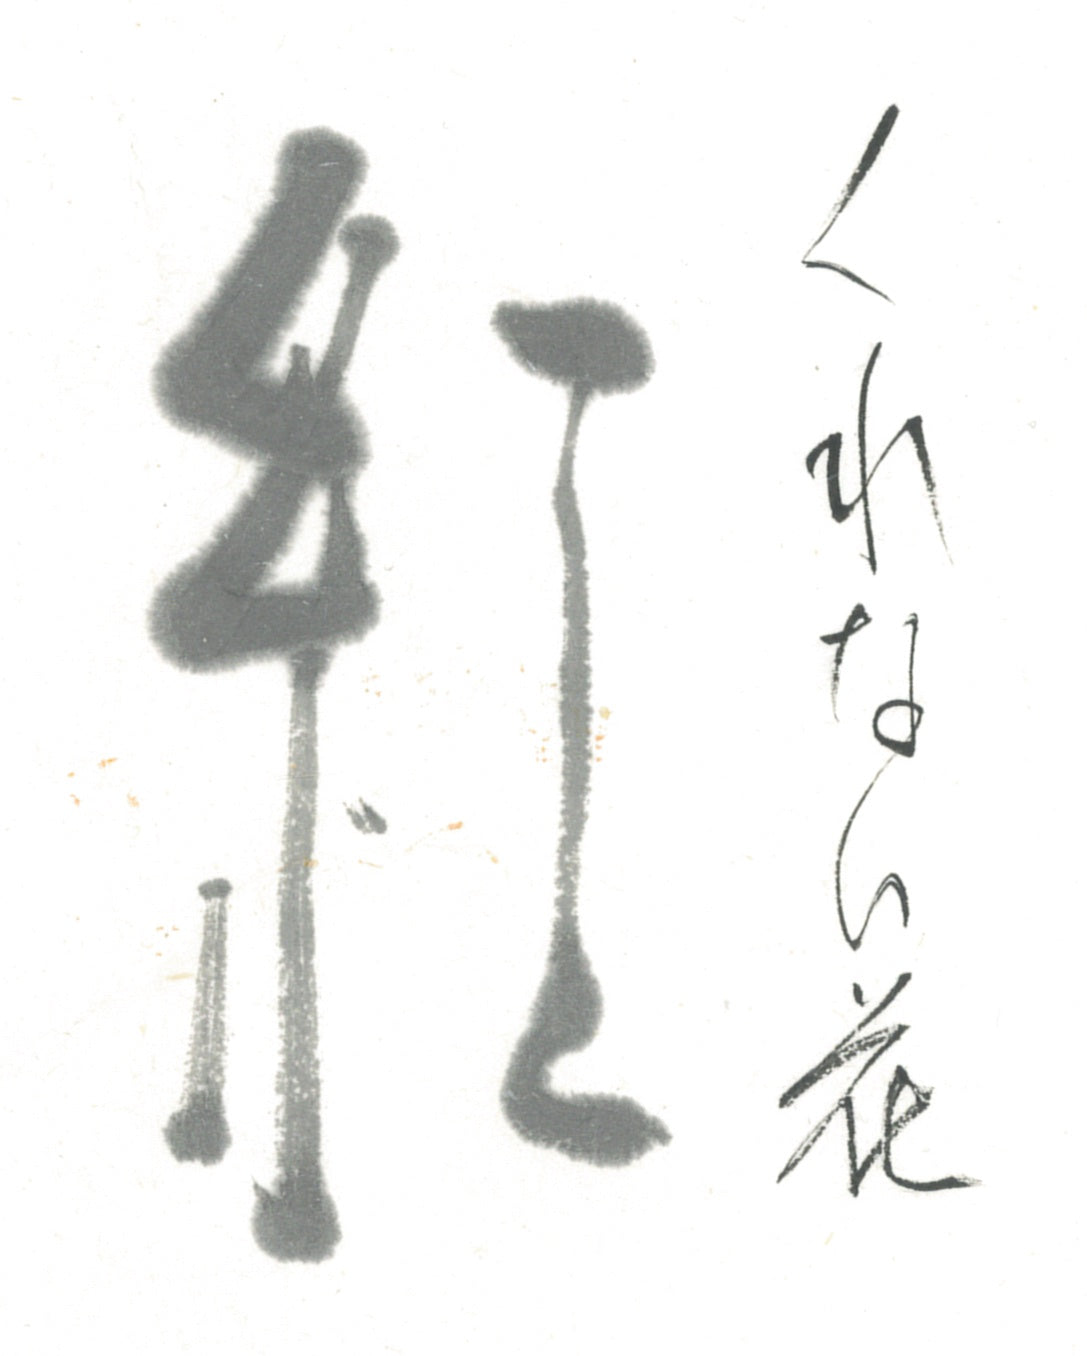 くれない花
紅